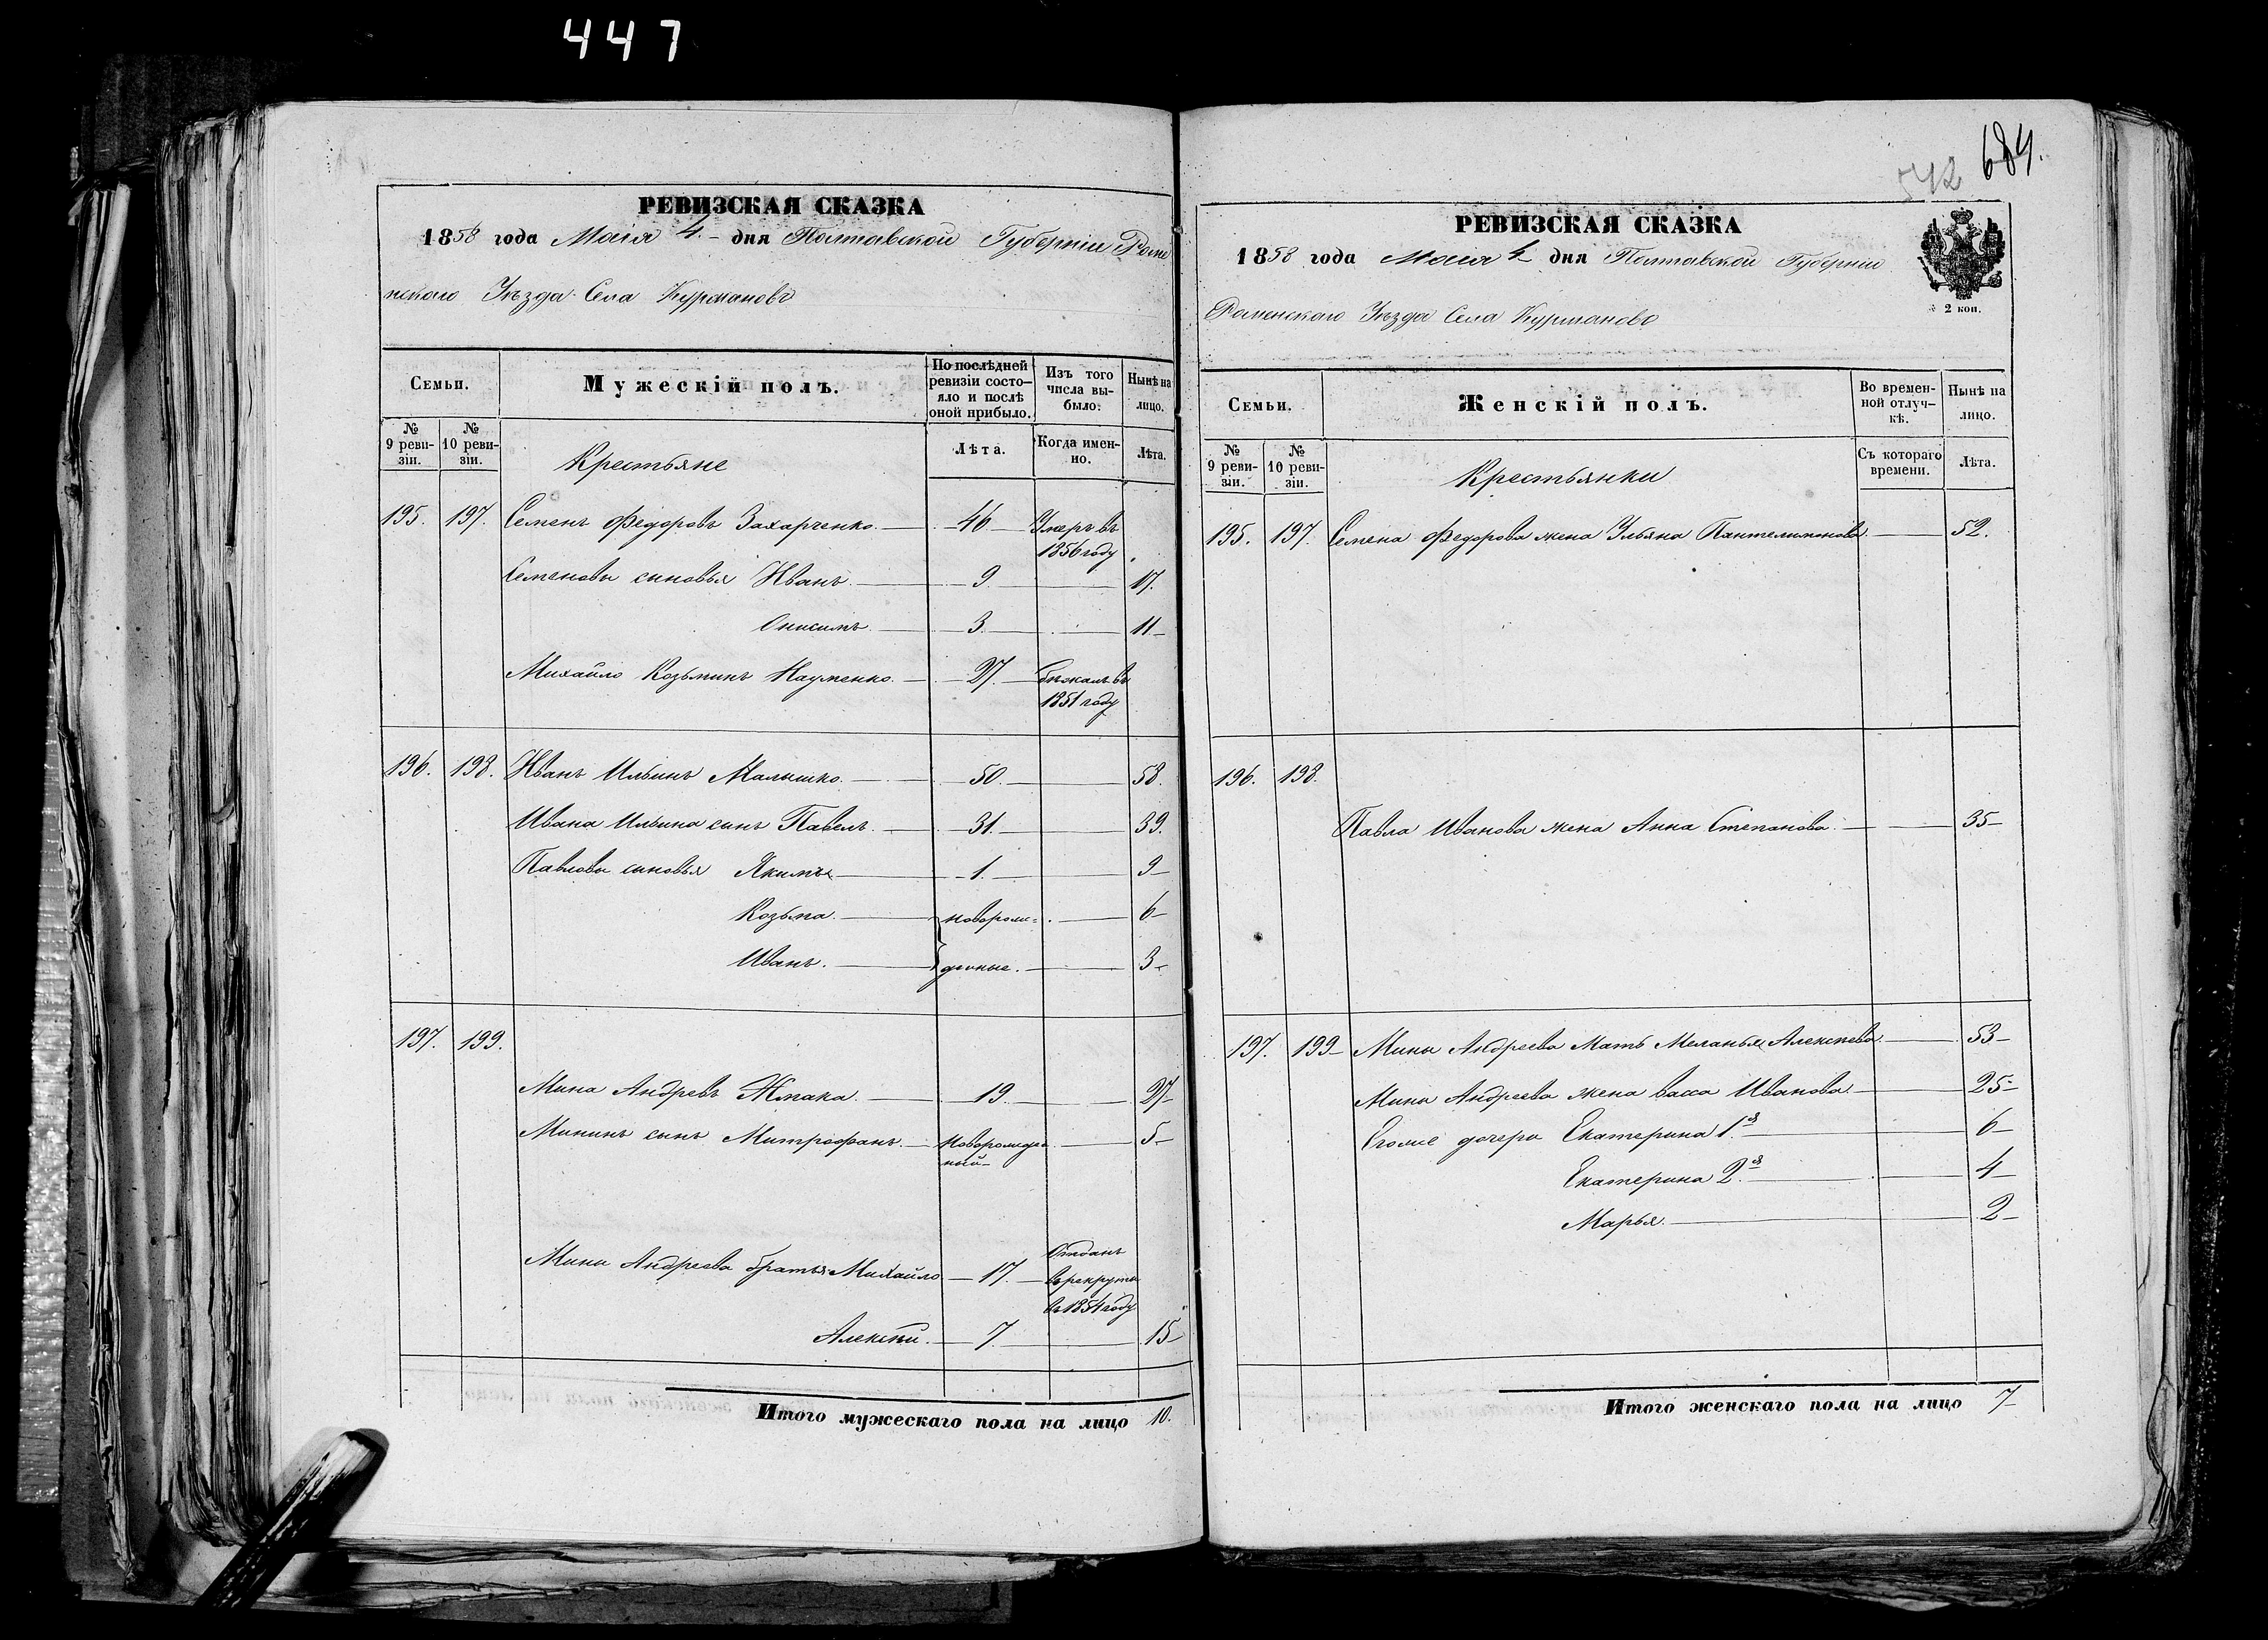 447
РЕВИЗСКАЯ СКАЗКА
1858 года Маія 4 дня Полтавской Губерніи Роме
нского Уѣзда Села Курмановъ
Семьи.
Мужескій полъ.
По послѣдней ревизіи состо—яло и послѣ оной прибыло.
Изъ того числа вы-было.
Нынѣ на лицо.
№ 9 реви-зіи.
№ 10 реви-зіи.
Крестьяне
Лѣта.
Когда имен-но.
Лѣта.
195. 197. Семенъ Федоровъ Захарченко. — 46 — Умеръ въ
1856 году
Семеновы сыновья Иванъ. — 9 — 17.
Онисимъ. — 3. — 11—
Михайло Козьминъ Науменко. — 27. — бѣжалъ въ
1851 году
196. 198. Иванъ Ильинъ Малышко. — 50. — 58.
Ивана Ильина сынъ Павелъ. — 31. — 39.
Павловы сыновья Якимъ — 1. — 9—
Козьма. — новорож= — 6—
Иванъ. — денные. — 3—
197. 199.
Мина Андреевъ Жмака. — 19. — 27—
Мининъ сынъ Митрофанъ. — Новорожден — 5—
ный—
Отданъ
Мины Андреева братья Михайло — 17. — въ рекруты
въ 1854 году
Алексѣй. — 7. — 15—
Итого мужескаго пола на лицо 10.
542 684.
РЕВИЗСКАЯ СКАЗКА
1858 года Маія 4 дня Полтавской Губерніи
Роменского Уѣзда Села Курмановъ
2 коп.
Семьи.
Женскій полъ.
Во времен-ной отлуч-кѣ.
Нынѣ на лицо.
№ 9 реви-зіи.
№ 10 реви-зіи.
Крестьянки
Съ котораго времени.
Лѣта.
195. 197. Семена Федорова жена Ульяна Пантелимонова — 52.
196. 198.
Павла Иванова жена Анна Степанова. — 35—
197. 199— Мины Андреева Мать Меланья Алексѣева — 53—
Мины Андреева жена Васса Иванова. — 25—
Егоже дочери Екатерина 1я — 6—
Екатерина 2я — 4—
Марья. — 2—
Итого женскаго пола на лицо 7—